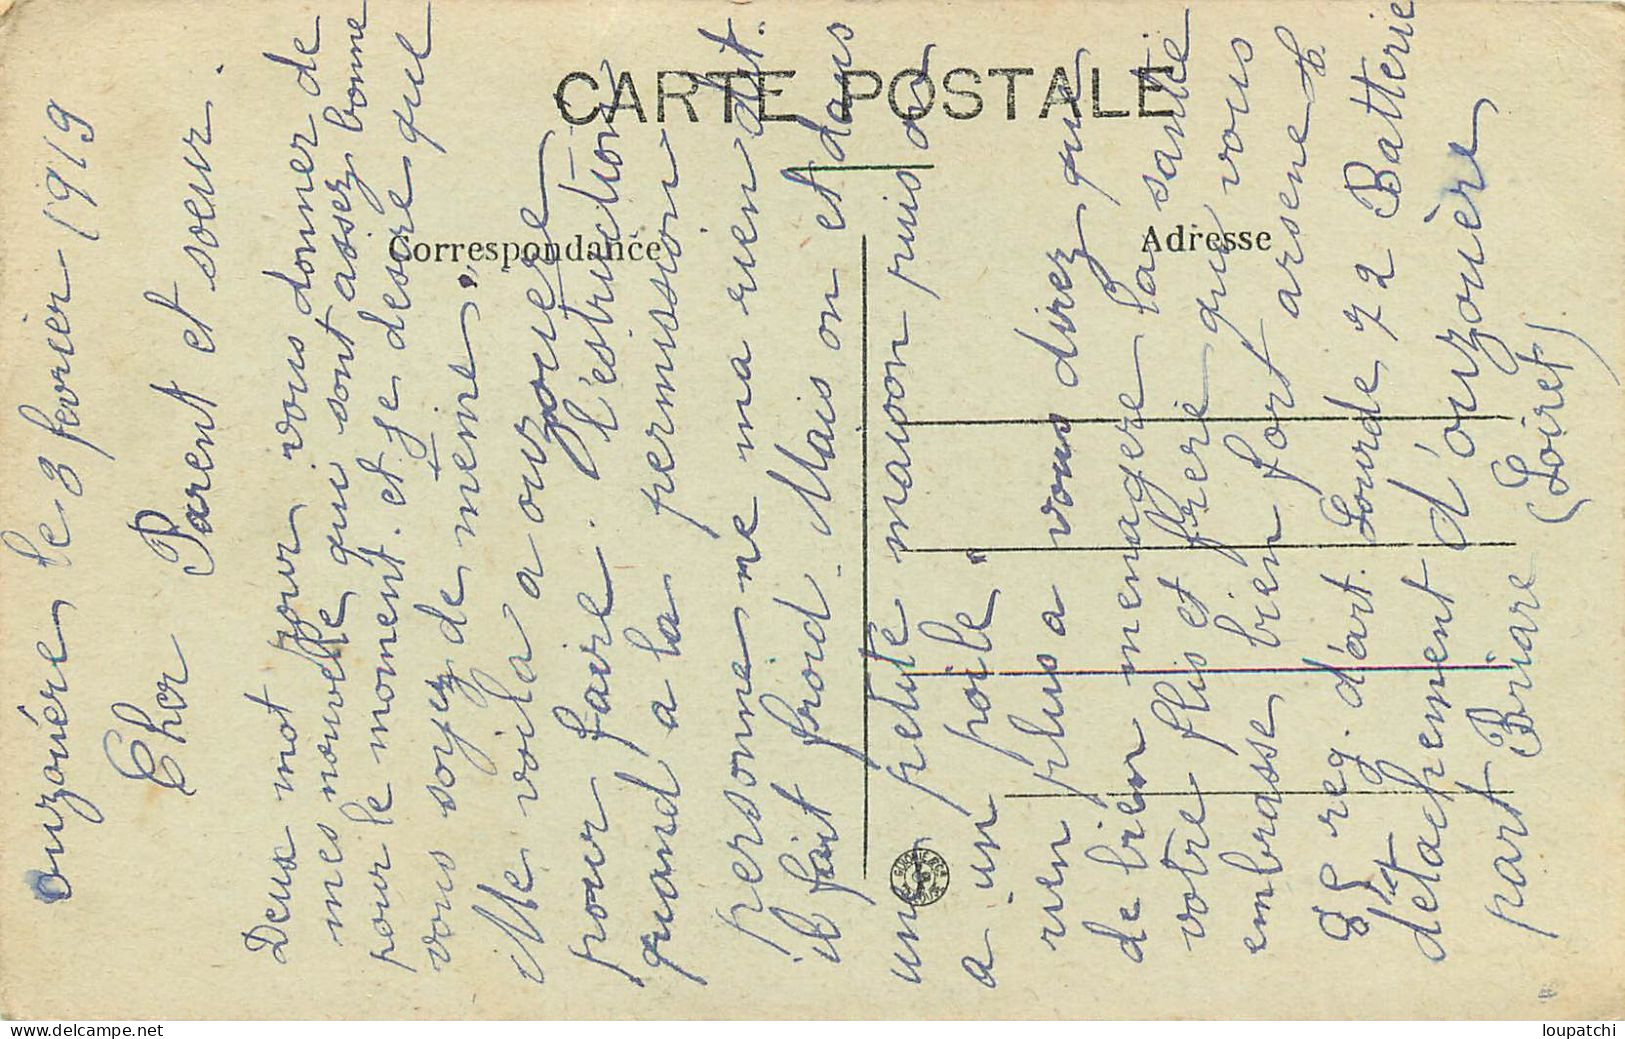 CARTE POSTALE
Correspondance
Adresse
ouzouére le 3 fevrier 1919
Cher Parent et soeur.
Deux mot pour vous donner de
mes nouvelle qui sont assez bonne
pour le moment. et je desire que
vous soyez de meme.
Me voila a ouzouere
pour faire l'estruction
quand a la permission
personne ne ma rien dit.
il fait froid. Mais on est dans
une petite maison puis on
a un poile.
rien plus a vous direz que
de bien menagere la santée
votre flis et frere qui vous
embrasse bien fort arsene
85 reg. d'art. Lourde 72 Batterie
détachement d'ouzouère
part Briare (Loiret)
loupatchi